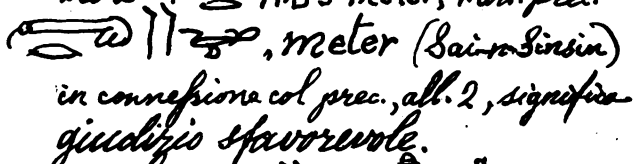 meter,
, meter (Sai-n-Sinsin)
in connessione col prec., all. 2, significa
giudizio sfavorevole.